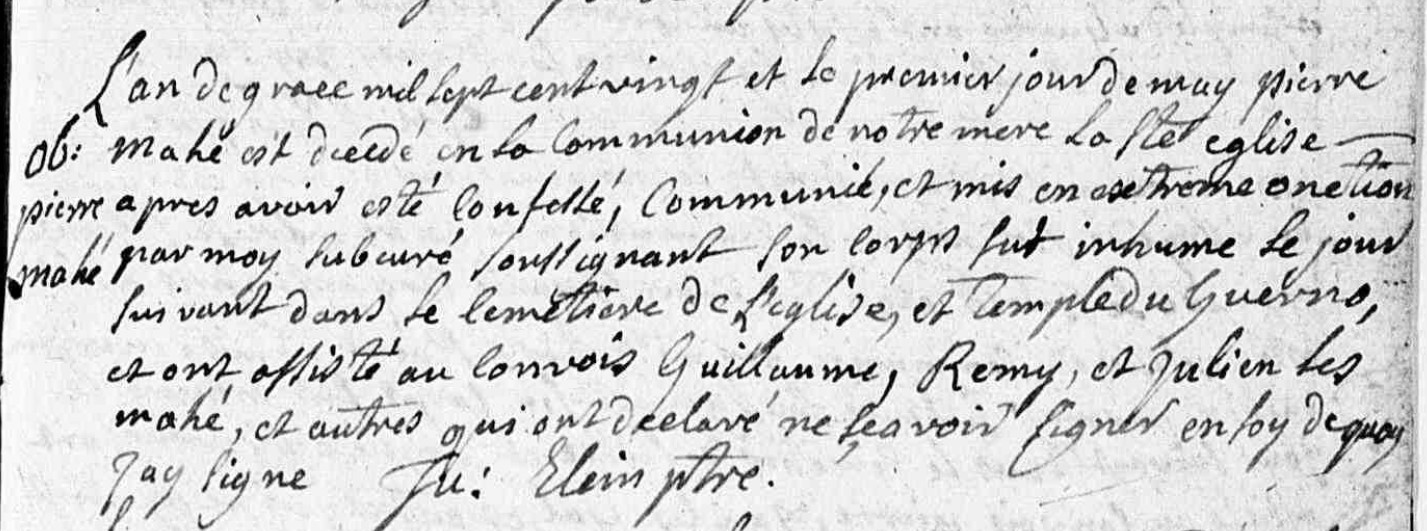 L'an de grace mil sept cent vingt et le premier jour de may pierre
mahé est decedé en la Communion de notre mere la Ste eglise
ob: pierre mahé
apres avoir esté Confessé, Communié, et mis en extreme onction
par moy subcuré soussignant son corps fut inhumé le jour
suivant dans le Cemetiere de l'eglise, et Temple du Guerno,
et ont assisté au convois Guillaume, Remy, et Julien les
mahé, et autres qui ont declaré ne sçavoir signer en foy de quoy
j'ay signe Ju: Elein ptre.